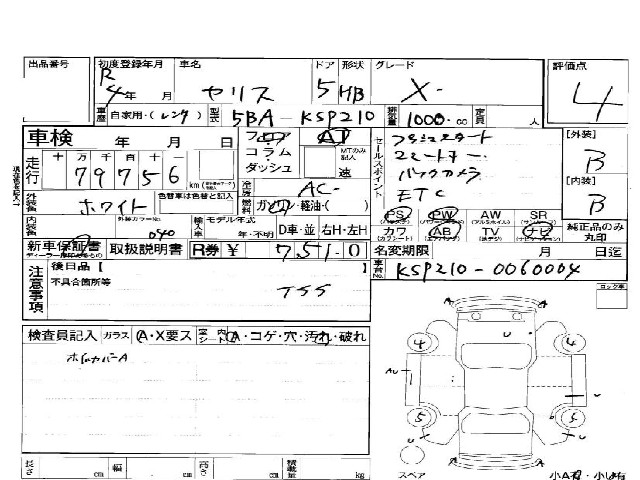 出品番号 初度登録年月 車名 ドア 形状 グレード 評価点
R4年 月 ヤリス 5 HB X 4
車歴 自家用・(レンタ) 型式 5BA-KSP210 排気量 1000 cc 定員 人
車検 年 月 日 フロア AT セールスポイント プッシュスタート [外装]
走行 十万千百十一 コラム MTのみ記入 スマートキー B
79756 km ダッシュ 速 バックカメラ [内装]
外装色 ホワイト 色替車は色替と記入 冷房 AC ETC B
燃料 ガソリン・軽油・( )
内装色 外装カラーNo. 040 輸入車 モデル年式 年・不明 D車・並 右H・左H
PS PW AW SR
カワ AB TV ナビ 純正品のみ丸印
新車保証書 取扱説明書 R券 ¥ 7,510 名変期限 月 日迄
注意事項 後日品【 】 車台No. KSP210-0060004
不具合箇所等 TSS
ロック車
検査員記入 ガラス A・X要ス 室内 シート A・コゲ・穴・汚れ・破れ
ホイルカバーA
4 4
AU U
5 4
U U
長さ cm 幅 cm 高さ cm 積載量 kg
スペア 小A有・小U有